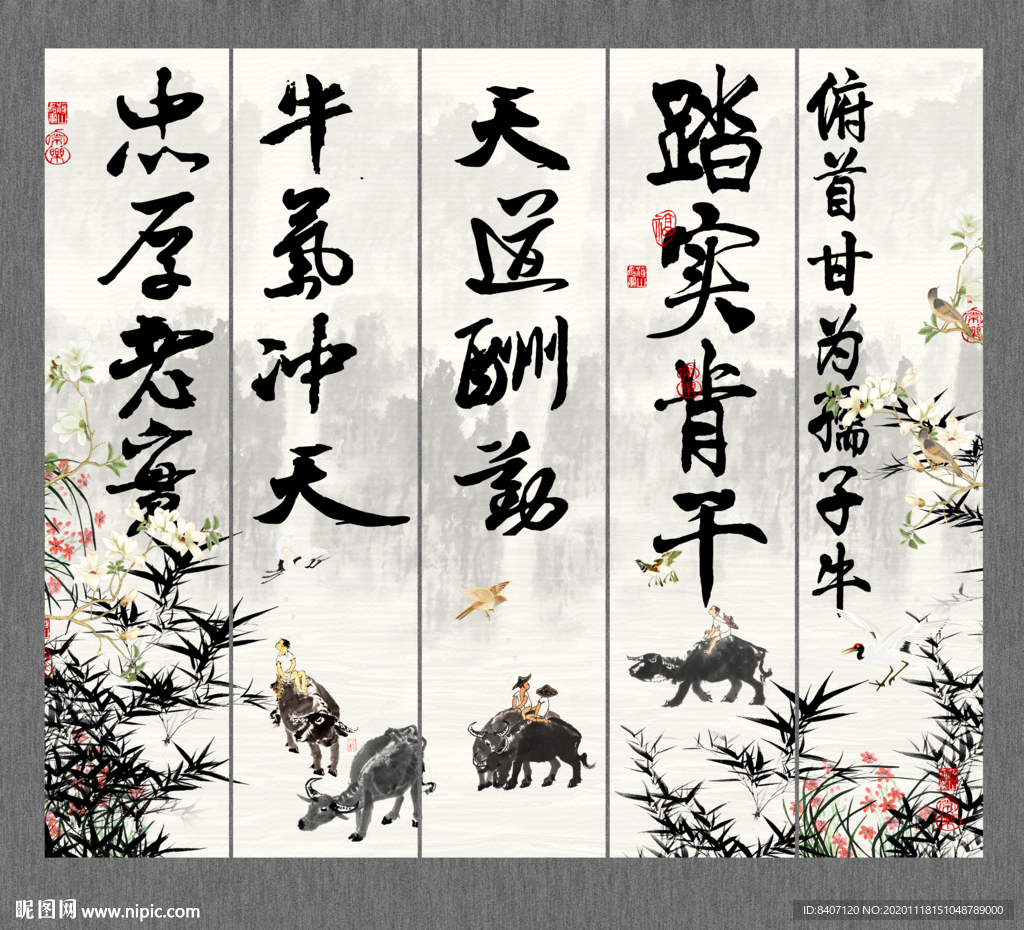 俯首甘为孺子牛
踏实肯干
天道酬勤
牛氣冲天
忠厚老實
昵图网 www.nipic.com
ID:8407120 NO:20201118151048789000